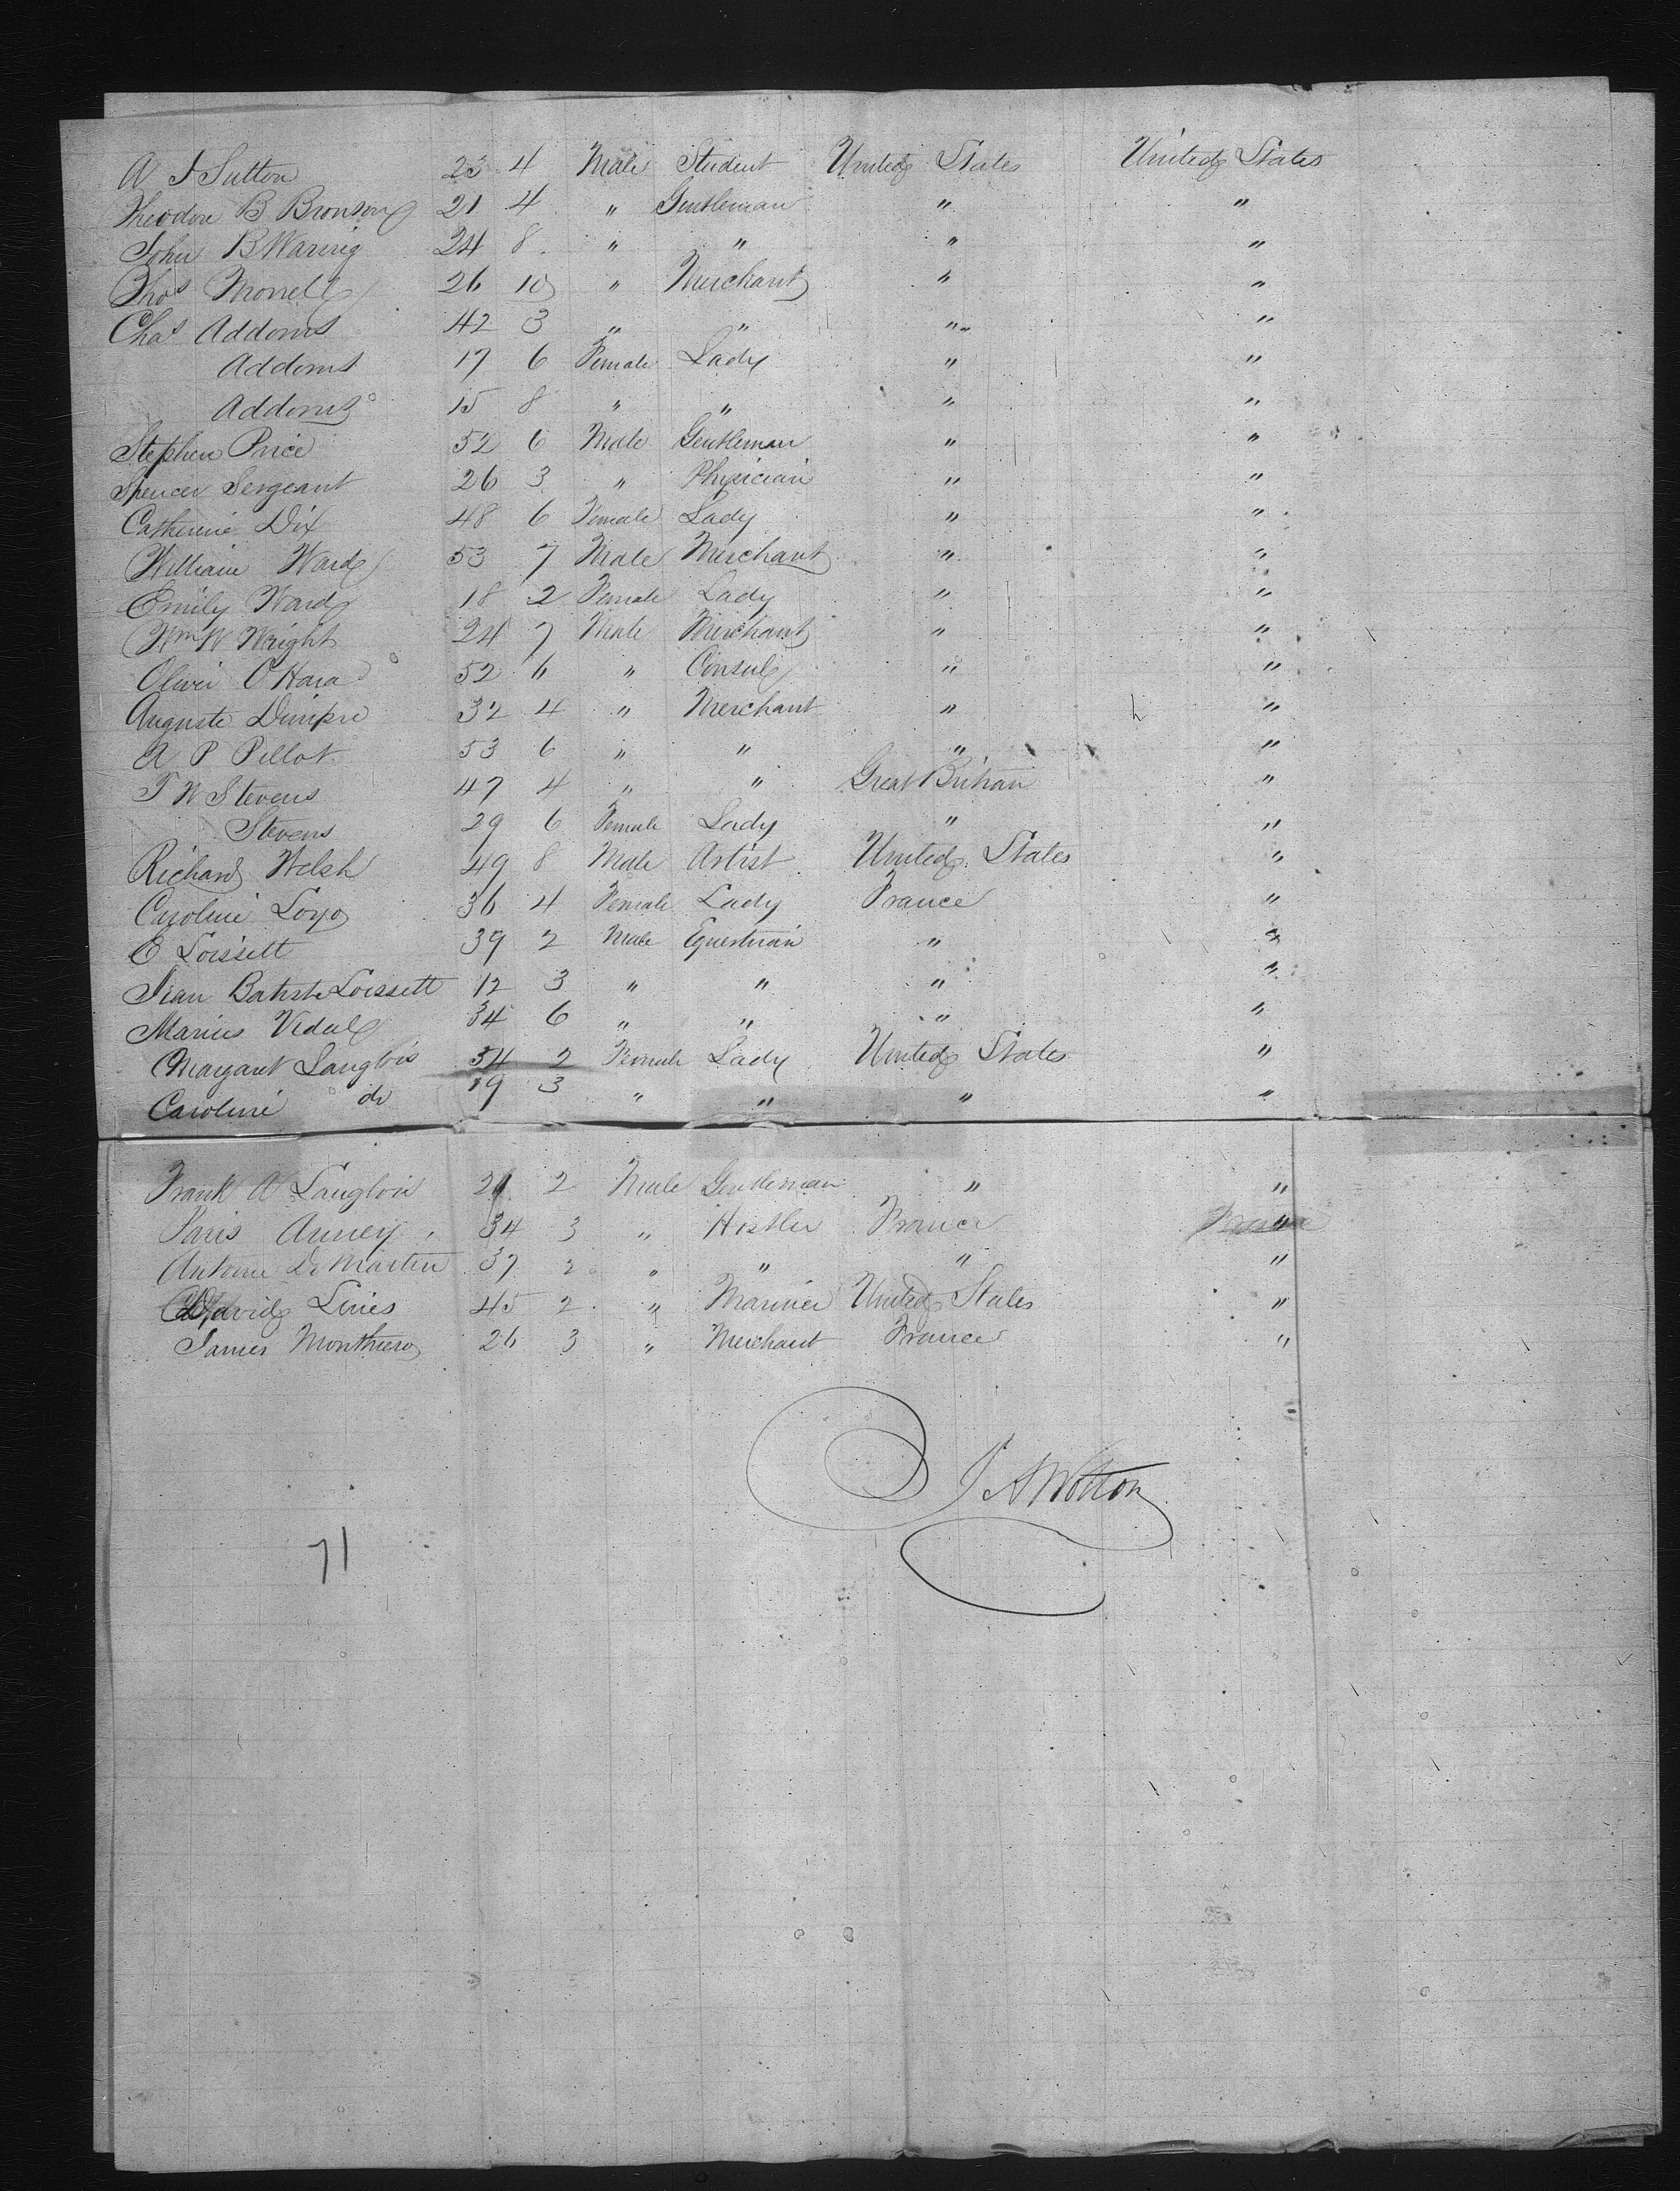 A J Sutton 23 4 Male Student United States United States
Theodore B Bronson 21 4 " Gentleman " "
John B Waring 24 8 " " " "
Thos Morrell 26 10 " Merchant " "
Chas Addoms 42 3 " " " "
Addoms 17 6 Female Lady " "
Addoms 15 8 " " " "
Stephen Price 52 6 Male Gentleman " "
Spencer Sergeant 26 3 " Physician " "
Catherine Dix 48 6 Female Lady " "
William Ward 53 7 Male Merchant " "
Emily Ward 18 2 Female Lady " "
Wm W Wright 24 7 Male Merchant " "
Oliver O'Hara 52 6 " Consul " "
Auguste 32 4 " Merchant " "
A P Pillot 53 6 " " " "
47 4 " " Great Britian "
Stevens 29 6 Female Lady " "
Richard Welsh 49 8 Male Artist United States "
Caroline Loyo 36 4 Female Lady France "
E Loissett 39 2 Male Equestrian " "
Jean Batiste Loissett 12 3 " " " "
Marius Vidal 34 6 " " " "
Margaret Langlois 54 2 Female Lady United States "
Caroline do 19 3 " " " "
Frank A Langlois 21 2 Male Gentleman " "
Paris 34 3 " Hostler France "
Antoine De Martin 37 2 " " " "
David Lines 45 2 " Mariner United States "
James 26 3 " Merchant France "
J A Wotton
71